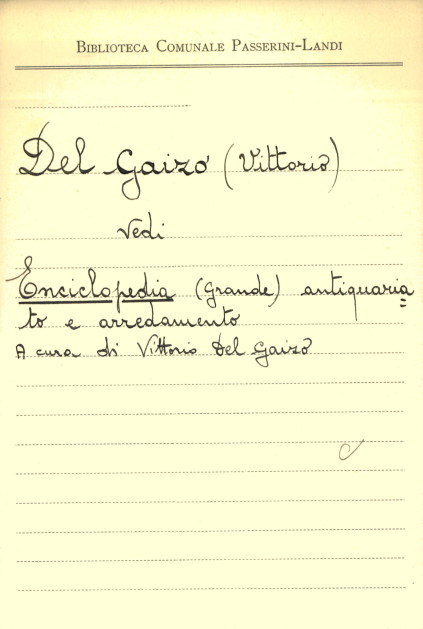 BIBLIOTECA COMUNALE PASSERINI-LANDI
Del Gaizo (Vittorio)
Vedi
Enciclopedia (Grande) antiquaria=
to e arredamento
A cura di Vittorio Del Gaizo